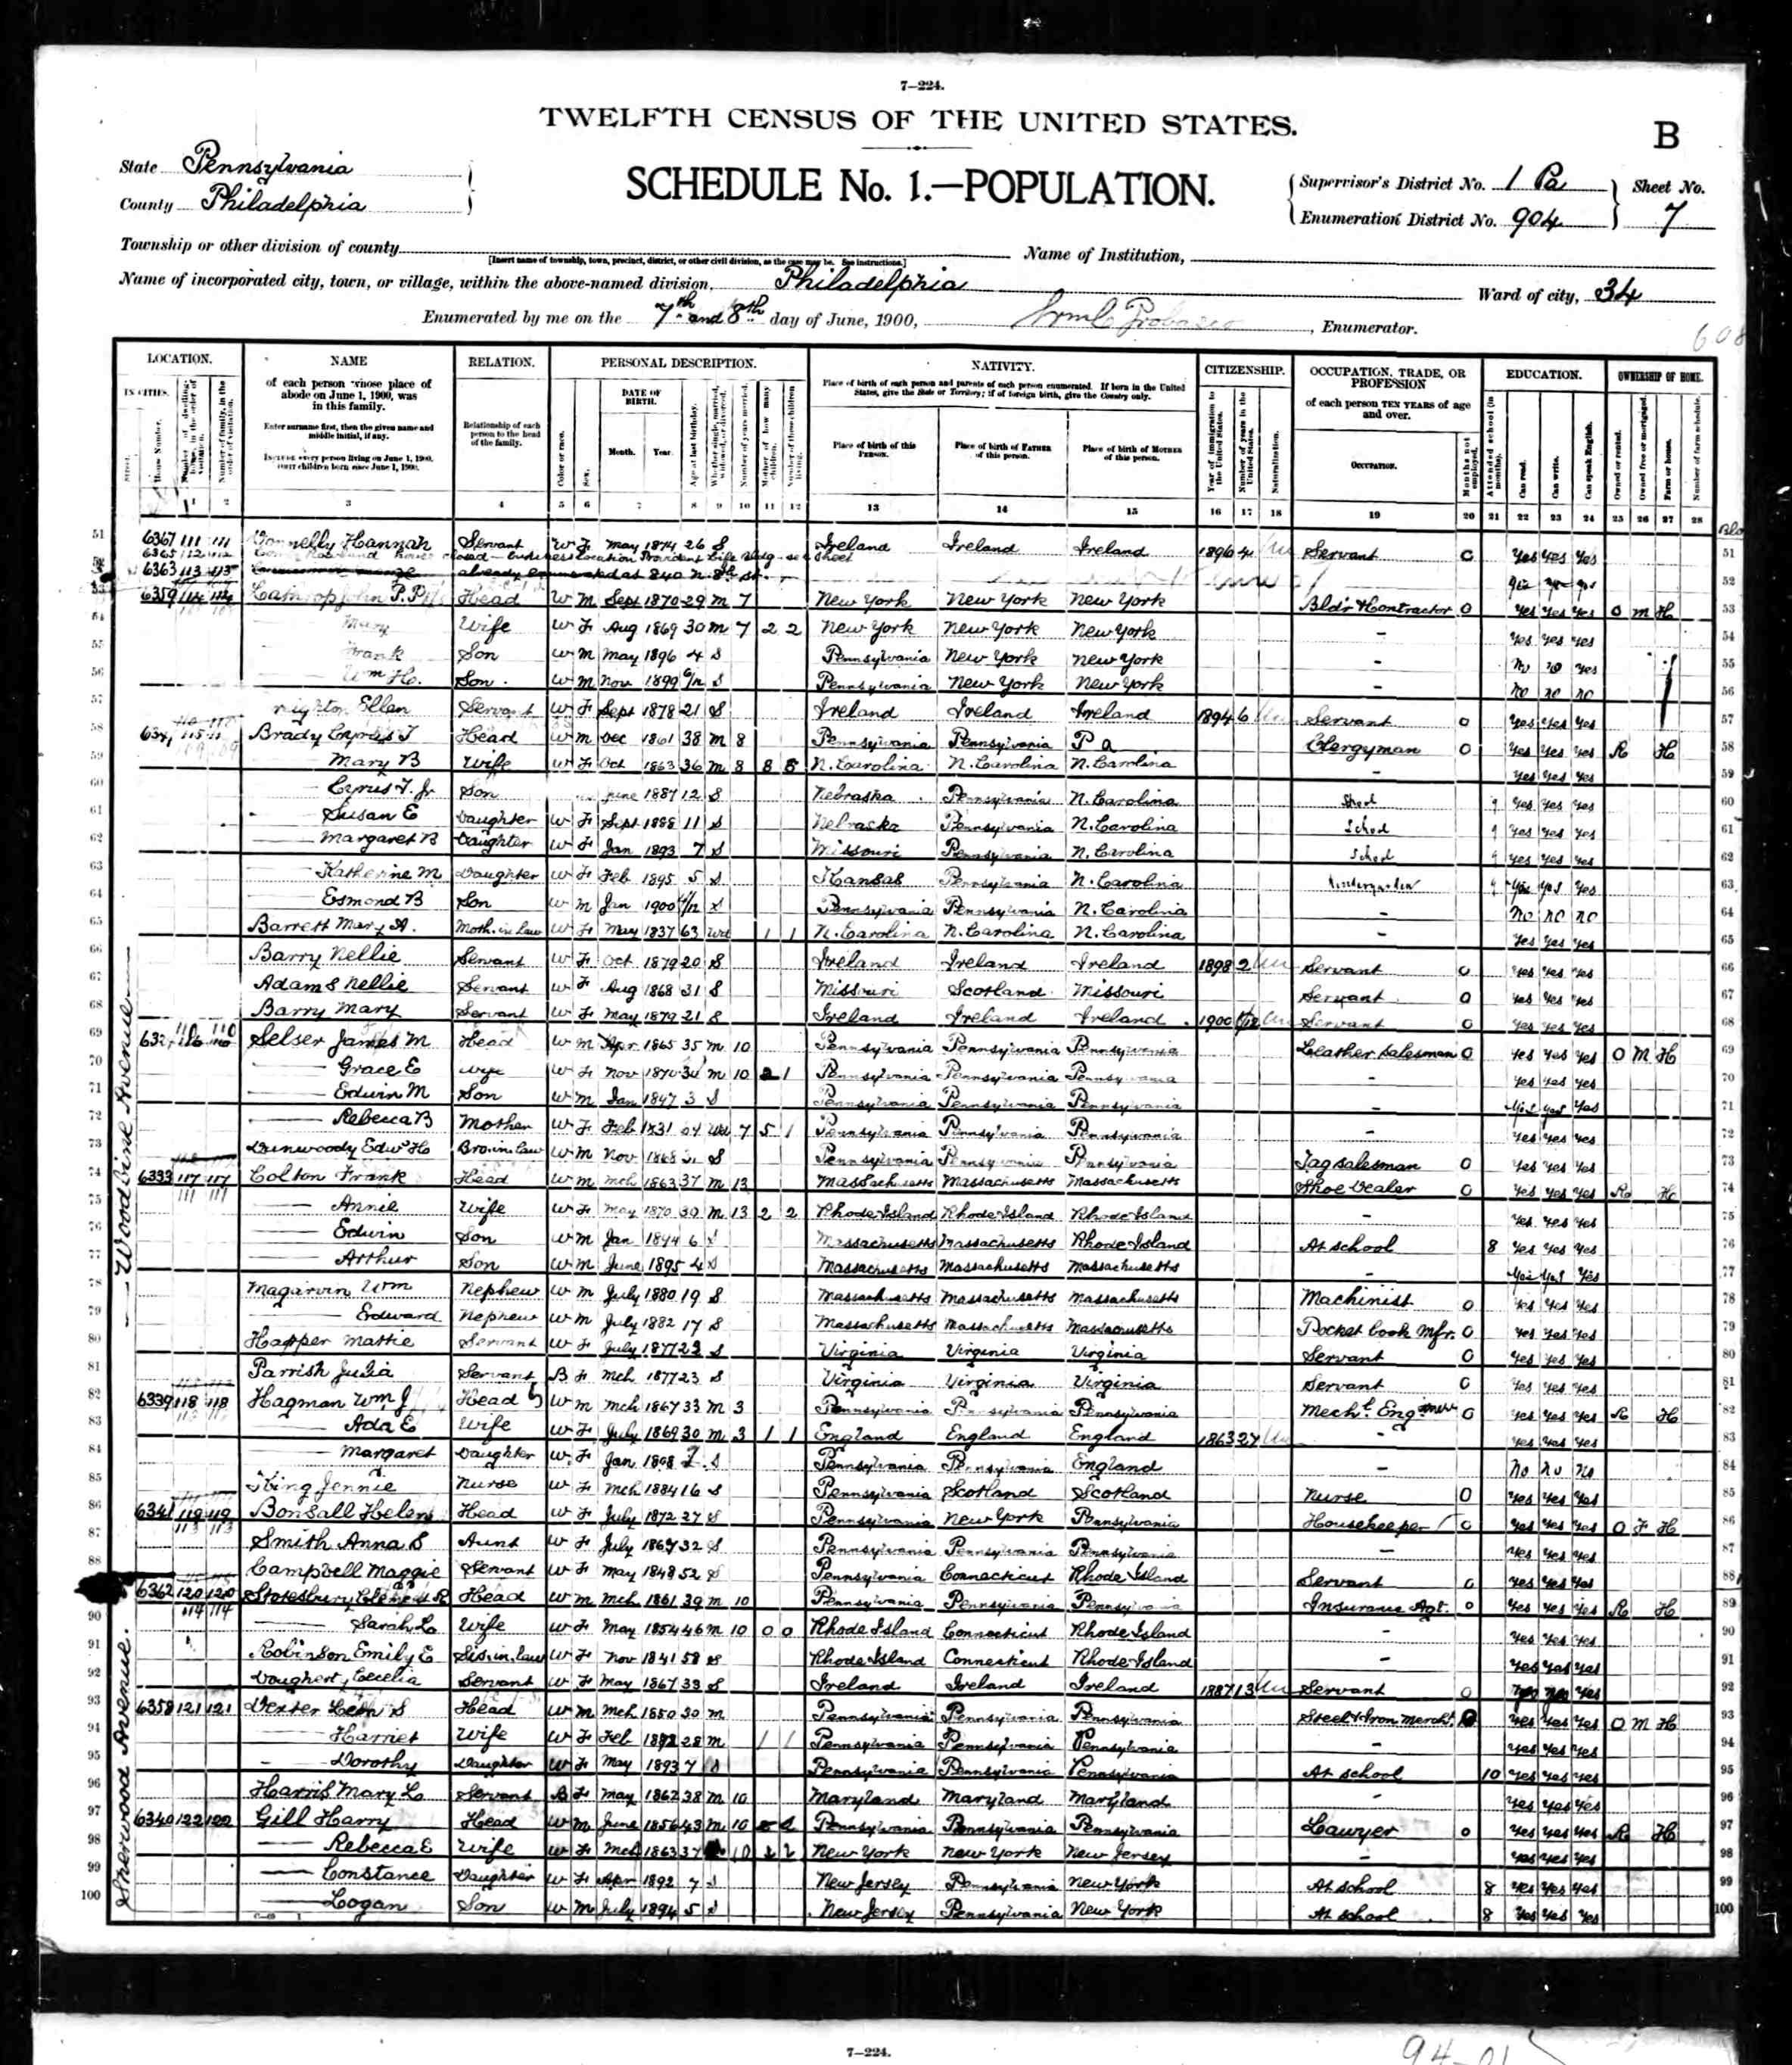 7—224.
TWELFTH CENSUS OF THE UNITED STATES.
B
State Pennsylvania
County Philadelphia
SCHEDULE No. 1.—POPULATION.
Supervisor's District No. 1 Pa
Enumeration District No. 904
Sheet No.
7
Township or other division of county
[Insert name of township, town, precinct, district, or other civil division, as the case may be. See instructions.]
Name of Institution,
Name of incorporated city, town, or village, within the above-named division, Philadelphia
Ward of city, 34
Enumerated by me on the 7th and 8th day of June, 1900, , Enumerator.
LOCATION. NAME RELATION. PERSONAL DESCRIPTION. NATIVITY. CITIZENSHIP. OCCUPATION, TRADE, OR PROFESSION EDUCATION. OWNERSHIP OF HOME.
IN CITIES. of each person whose place of abode on June 1, 1900, was in this family.
Enter surname first, then the given name and middle initial, if any.
Include every person living on June 1, 1900. Omit children born since June 1, 1900.
Relationship of each person to the head of the family.
DATE OF BIRTH. Month. Year.
Place of birth of each person and parents of each person enumerated. If born in the United States, give the State or Territory; if of foreign birth, give the Country only.
Place of birth of this Person. Place of birth of Father of this person. Place of birth of Mother of this person.
of each person TEN YEARS of age and over.
Occupation.
1 2 3 4 5 6 7 8 9 10 11 12 13 14 15 16 17 18 19 20 21 22 23 24 25 26 27 28
51 6367 111 111 Hannah Servant W F May 1874 26 S Ireland Ireland Ireland 1896 4 Servant 0 yes yes yes 51
6365 112 112
52 6363 113 113 already enumerated at 840 N. 8th St. 52
53 6359 114 114 John P. Head W M Sept 1870 29 M 7 New York New York New York Bld'r & Contractor 0 yes yes yes O M H 53
54 Mary Wife W F Aug 1869 30 M 7 2 2 New York New York New York yes yes yes 54
55 Frank Son W M May 1896 4 S Pennsylvania New York New York no no yes 55
56 Wm H. Son W M Nov 1899 6/12 S Pennsylvania New York New York no no no 56
57 Ellen Servant W F Sept 1878 21 S Ireland Ireland Ireland 1894 6 Servant 0 yes yes yes 57
58 Brady Cyrus T Head W M Dec 1861 38 M 8 Pennsylvania Pennsylvania Pa Clergyman 0 yes yes yes R H 58
59 Mary B Wife W F Oct 1863 36 M 8 N. Carolina N. Carolina N. Carolina yes yes yes 59
60 Cyrus T. Jr Son June 1887 12 S Nebraska Pennsylvania N. Carolina School 9 yes yes yes 60
61 Susan E Daughter W F Sept 1888 11 S Nebraska Pennsylvania N. Carolina School 9 yes yes yes 61
62 Margaret B Daughter W F Jan 1893 7 S Missouri Pennsylvania N. Carolina School 9 yes yes yes 62
63 Katherine M Daughter W F Feb 1895 5 S Kansas Pennsylvania N. Carolina Kindergarten 9 yes yes yes 63
64 Esmond B Son W M Jan 1900 4/12 S Pennsylvania Pennsylvania N. Carolina no no no 64
65 Barrett Mary A. Moth. in law W F May 1837 63 Wd 1 1 N. Carolina N. Carolina N. Carolina yes yes yes 65
66 Barry Nellie Servant W F Oct 1879 20 S Ireland Ireland Ireland 1898 2 Servant 0 yes yes yes 66
67 Adams Nellie Servant W F Aug 1868 31 S Missouri Scotland Missouri Servant 0 yes yes yes 67
68 Barry Mary Servant W F May 1879 21 S Ireland Ireland Ireland 1900 Servant 0 yes yes yes 68
69 116 Selser James M Head W M Apr 1865 35 M 10 Pennsylvania Pennsylvania Pennsylvania Leather Salesman 0 yes yes yes O M H 69
70 Grace E Wife W F Nov 1870 M 10 2 1 Pennsylvania Pennsylvania Pennsylvania yes yes yes 70
71 Edwin M Son W M Jan 1897 3 S Pennsylvania Pennsylvania Pennsylvania yes yes yes 71
72 Rebecca B Mother W F Feb 1831 Wd 7 5 1 Pennsylvania Pennsylvania Pennsylvania yes yes yes 72
73 Dunwoody Edw H Bro. in law W M Nov 1868 31 S Pennsylvania Pennsylvania Pennsylvania Tag salesman 0 yes yes yes 73
74 6333 117 117 Colton Frank Head W M Mch 1863 37 M 13 Massachusetts Massachusetts Massachusetts Shoe Dealer 0 yes yes yes R H 74
75 Annie Wife W F May 1870 30 M 13 2 2 Rhode Island Rhode Island Rhode Island yes yes yes 75
76 Edwin Son W M Jan 1894 6 S Massachusetts Massachusetts Rhode Island At school 8 yes yes yes 76
77 Arthur Son W M June 1895 4 S Massachusetts Massachusetts Massachusetts yes yes yes 77
78 Magarvin Wm Nephew W M July 1880 19 S Massachusetts Massachusetts Massachusetts Machinist 0 yes yes yes 78
79 Edward Nephew W M July 1882 17 S Massachusetts Massachusetts Massachusetts Pocket book Mfr. 0 yes yes yes 79
80 Harper Mattie Servant W F July 1877 S Virginia Virginia Virginia Servant 0 yes yes yes 80
81 Parrish Julia Servant B F Mch 1877 23 S Virginia Virginia Virginia Servant 0 yes yes yes 81
82 6339 118 118 Hagman Wm J Head W M Mch 1867 33 M 3 Pennsylvania Pennsylvania Pennsylvania Mechl. Engineer 0 yes yes yes R H 82
83 Ada E Wife W F July 1869 30 M 3 1 1 England England England 1863 27 yes yes yes 83
84 Margaret Daughter W F Jan 1898 2 S Pennsylvania Pennsylvania England No No No 84
85 King Jennie Nurse W F Mch 1884 16 S Pennsylvania Scotland Scotland Nurse 0 yes yes yes 85
86 6341 119 119 Bonsall Helen Head W F July 1872 27 S Pennsylvania New York Pennsylvania Housekeeper 0 yes yes yes O F H 86
87 Smith Anna S Aunt W F July 1867 32 S Pennsylvania Pennsylvania Pennsylvania yes yes yes 87
88 Campbell Maggie Servant W F May 1848 52 S Pennsylvania Connecticut Rhode Island Servant 0 yes yes yes 88
89 6362 120 120 Stotesbury Head W M Mch 1861 39 M 10 Pennsylvania Pennsylvania Pennsylvania Insurance Agt. 0 yes yes yes R H 89
90 Sarah L Wife W F May 1854 46 M 10 0 0 Rhode Island Connecticut Rhode Island yes yes yes 90
91 Robinson Emily E Sis. in law W F Nov 1841 58 S Rhode Island Connecticut Rhode Island yes yes yes 91
92 Dougherty Cecelia Servant W F May 1867 33 S Ireland Ireland Ireland 1887 13 Servant 0 yes 92
93 6358 121 121 Dexter Leon S Head W M Mch M Pennsylvania Pennsylvania Pennsylvania Steel & Iron Merch't. yes yes yes O M H 93
94 Harriet Wife W F Feb 28 M 1 1 Pennsylvania Pennsylvania Pennsylvania yes yes yes 94
95 Dorothy Daughter W F May 1893 7 S Pennsylvania Pennsylvania Pennsylvania At school 10 yes yes yes 95
96 Harris Mary L Servant B F May 1862 38 M 10 Maryland Maryland Maryland yes yes yes 96
97 6340 122 122 Gill Harry Head W M June 1856 43 M 10 Pennsylvania Pennsylvania Pennsylvania Lawyer 0 yes yes yes R H 97
98 Rebecca E Wife W F Mch 1863 37 10 2 2 New York New York New Jersey yes yes yes 98
99 Constance Daughter W F Apr 1892 7 S New Jersey Pennsylvania New York At school 8 yes yes yes 99
100 Logan Son W M July 1894 5 S New Jersey Pennsylvania New York At school 8 yes yes yes 100
Woodbine Avenue
Sherwood Avenue.
7—224.